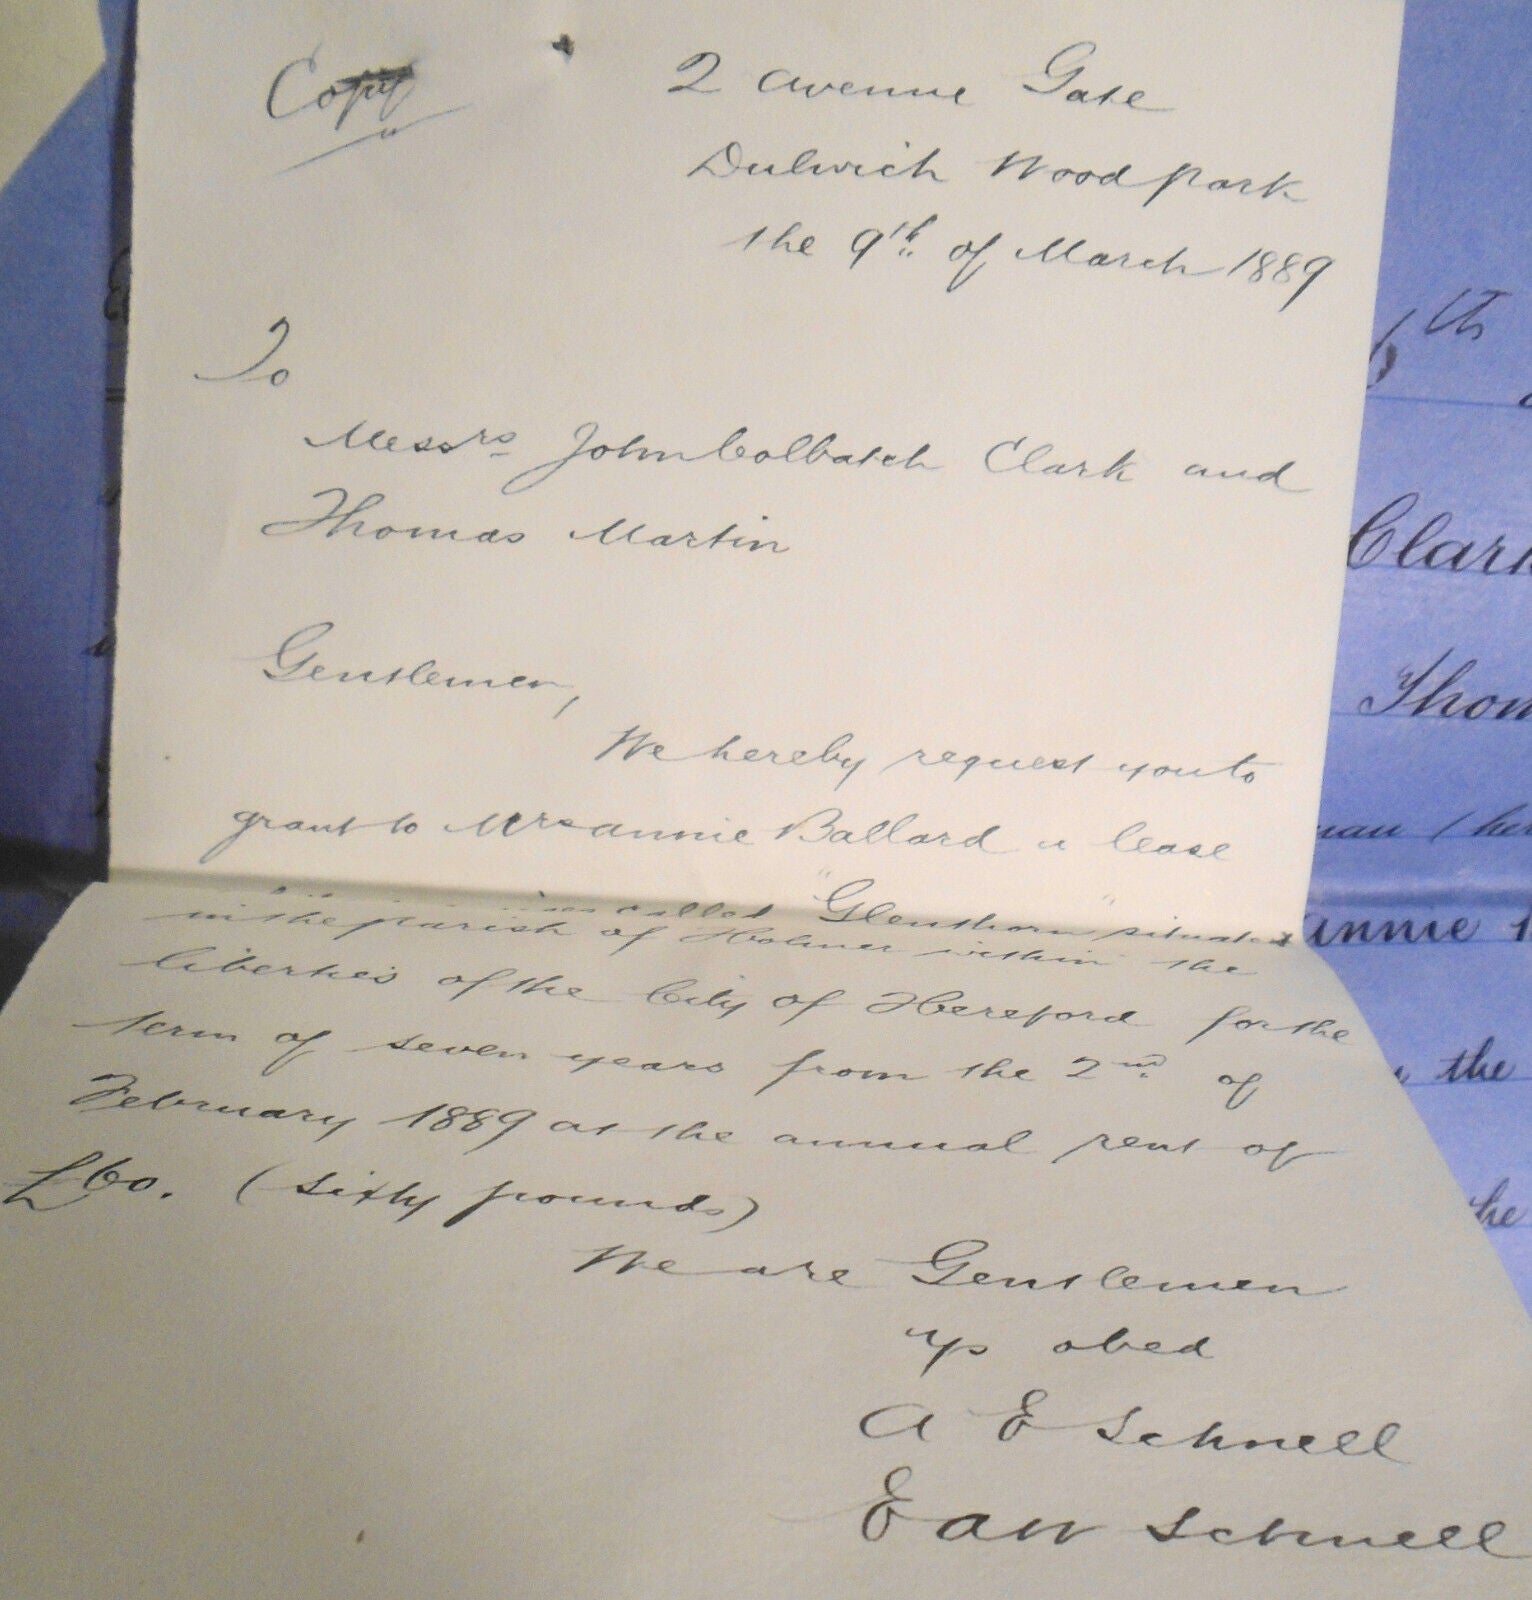 Copy
2 Avenue Gate
Dulwich Wood Park
the 9th of March 1889
To
Messrs John Colbatch Clark and
Thomas Martin
Gentlemen,
We hereby request you to
grant to Mrs Annie Ballard a lease
called "Glenthorn" situate
in the parish of Holmer within the
liberties of the City of Hereford for the
term of seven years from the 2nd of
February 1889 at the annual rent of
£60. (sixty pounds)
We are Gentlemen
yrs obed
A E Schnell
E A W Schnell
6th
Clark
Thom
Annie
the
the